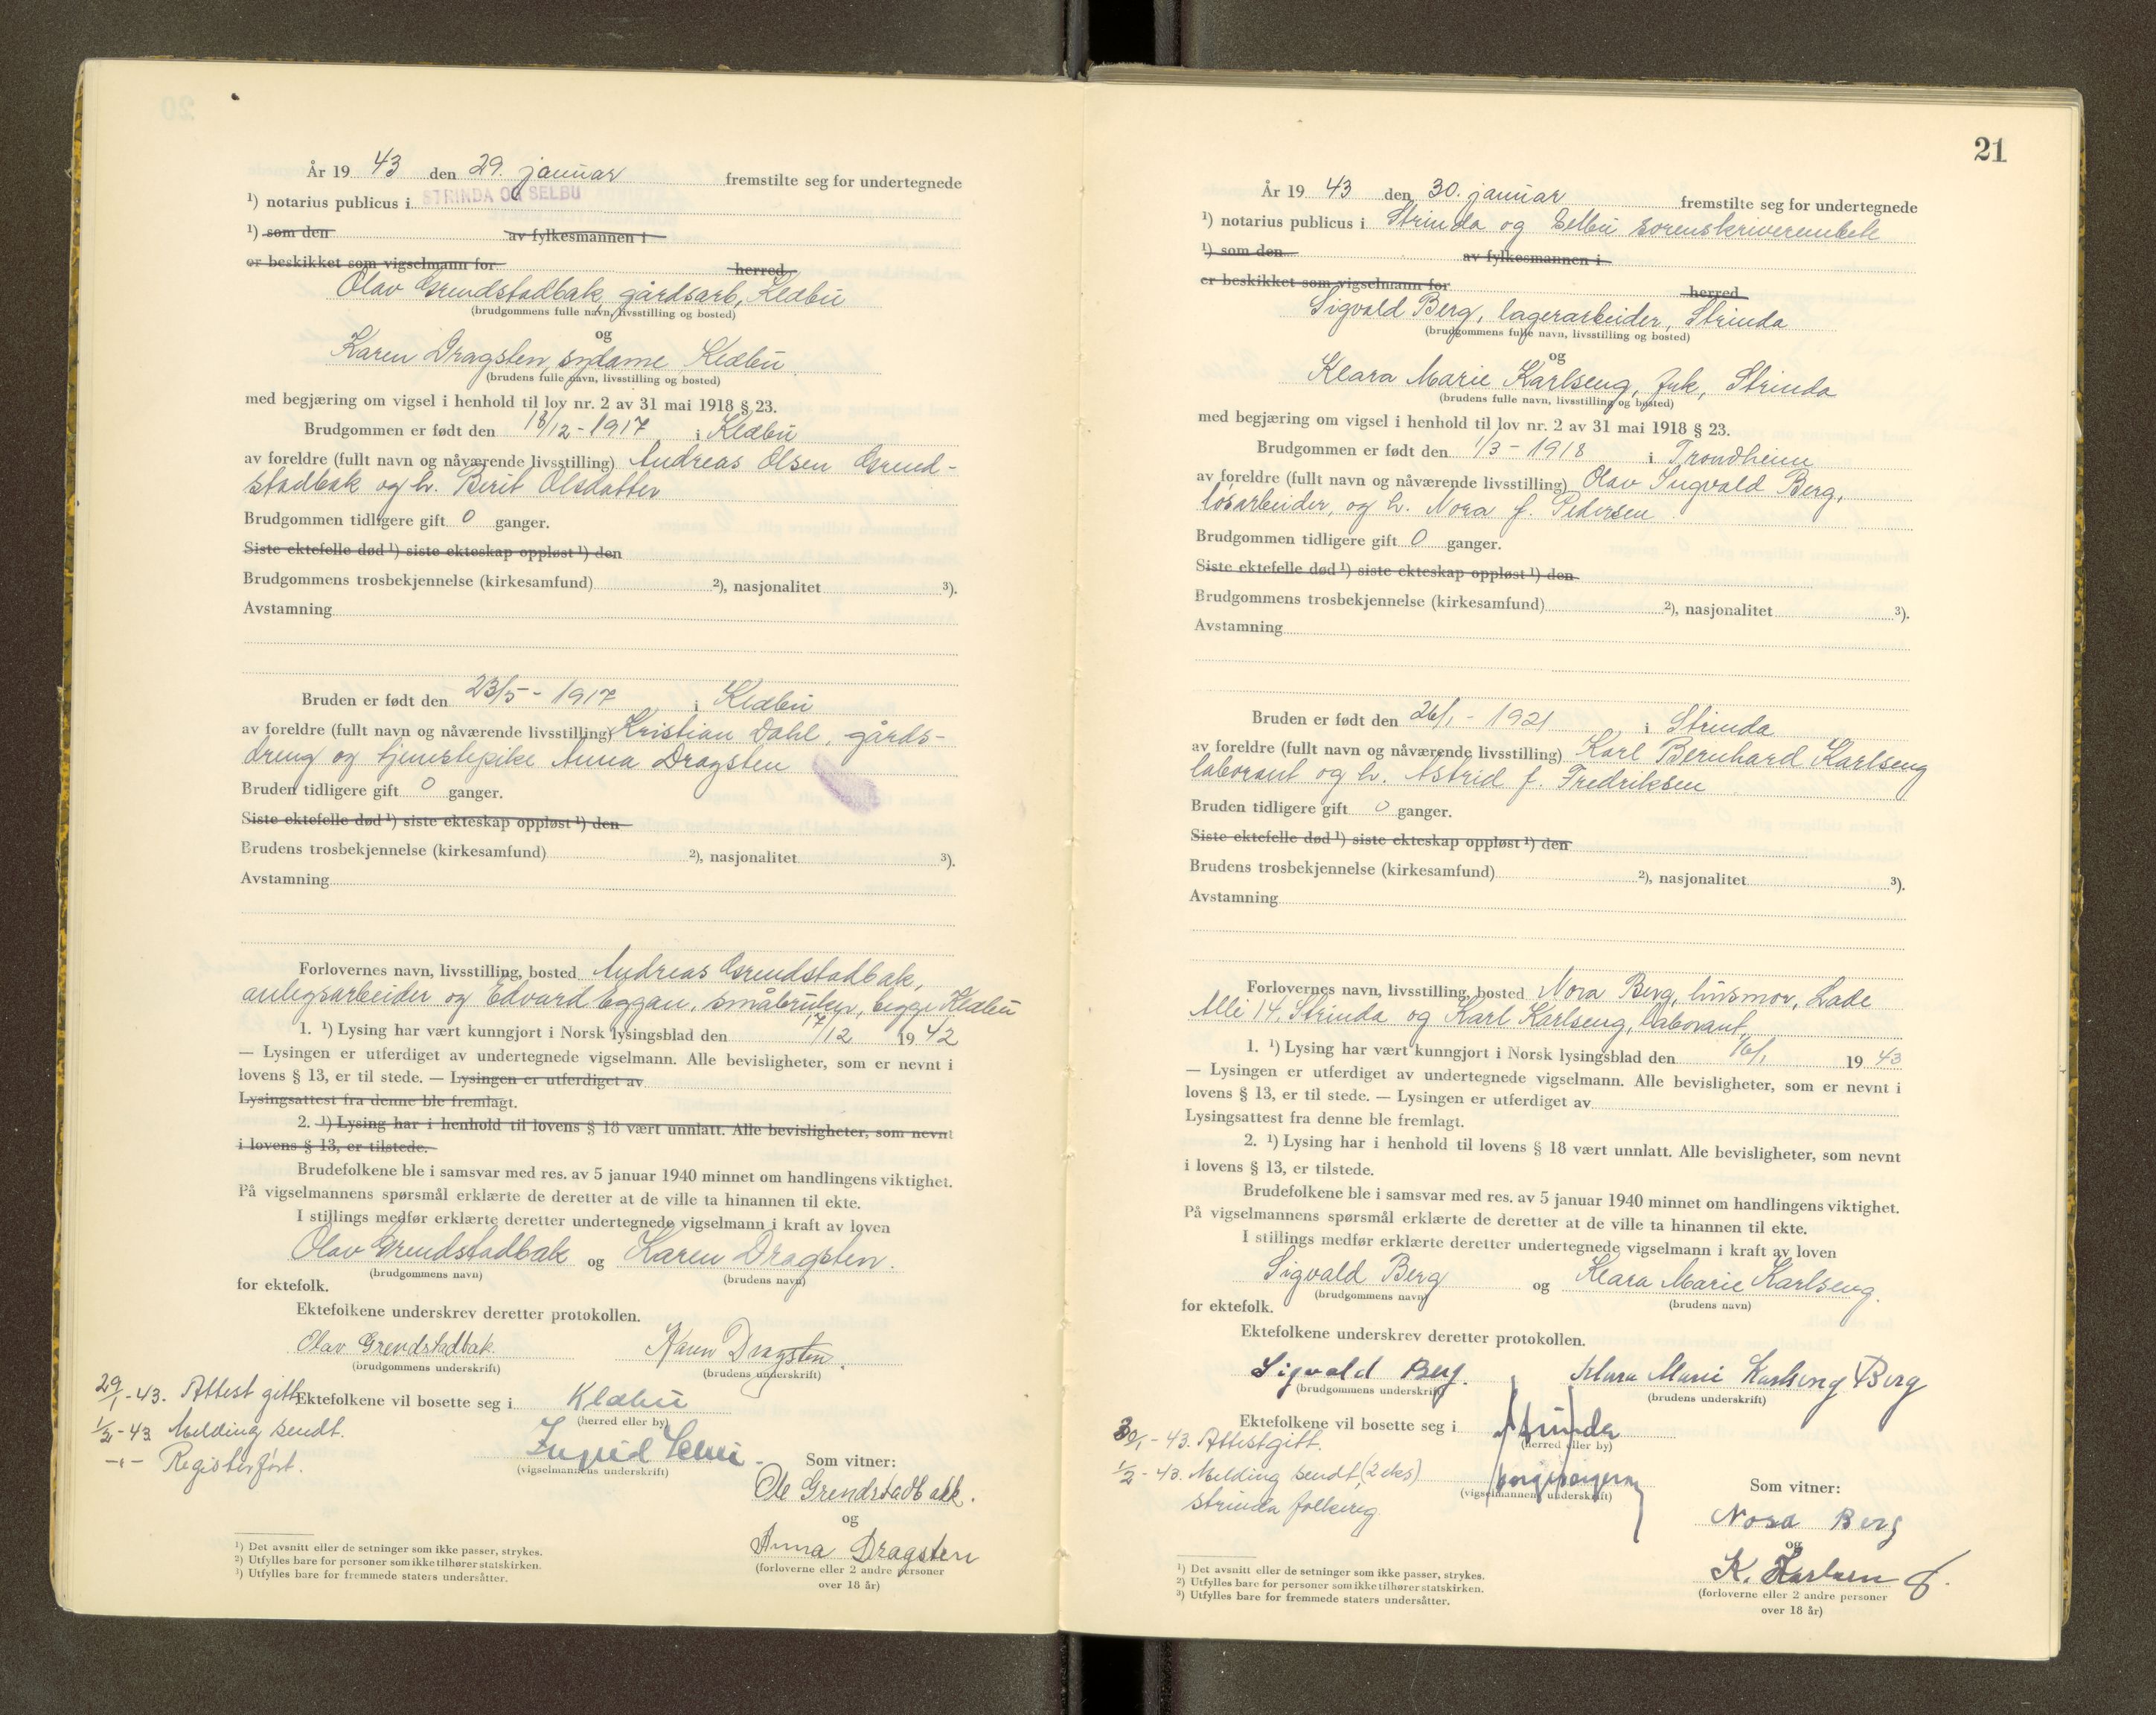 År 19 43 den 29. januar fremstilte seg for undertegnede
¹) notarius publicus i STRINDA OG SELBU
¹) som den av fylkesmannen i
er beskikket som vigselmann for herred
Olav Grendstadbak, gårdsarb, Klæbu
(brudgommens fulle navn, livsstilling og bosted)
og
Karen Dragsten, sydame, Klæbu
(brudens fulle navn, livsstilling og bosted)
med begjæring om vigsel i henhold til lov nr. 2 av 31 mai 1918 § 23.
Brudgommen er født den 18/12 - 1917 i Klæbu
av foreldre (fullt navn og nåværende livsstilling) Andreas Olsen Grend-
stadbak og h. Berit Olsdatter
Brudgommen tidligere gift 0 ganger.
Siste ektefelle død ¹) siste ekteskap oppløst ¹) den
Brudgommens trosbekjennelse (kirkesamfund) ²), nasjonalitet ³).
Avstamning
Bruden er født den 23/5 - 1917 i Klæbu
av foreldre (fullt navn og nåværende livsstilling) Kristian Dahl, gårds-
dreng og tjenestepike Anna Dragsten
Bruden tidligere gift 0 ganger.
Siste ektefelle død ¹) siste ekteskap oppløst ¹) den
Brudens trosbekjennelse (kirkesamfund) ²), nasjonalitet ³).
Avstamning
Forlovernes navn, livsstilling, bosted Andreas Grendstadbak,
anlegsarbeider og Edvard Eggan, småbruker, begge Klæbu
1. ¹) Lysing har vært kunngjort i Norsk lysingsblad den 17/12 19 42
— Lysingen er utferdiget av undertegnede vigselmann. Alle bevisligheter, som er nevnt i
lovens § 13, er til stede. — Lysingen er utferdiget av
Lysingsattest fra denne ble fremlagt.
2. ¹) Lysing har i henhold til lovens § 18 vært unnlatt. Alle bevisligheter, som nevnt
i lovens § 13, er tilstede.
Brudefolkene ble i samsvar med res. av 5 januar 1940 minnet om handlingens viktighet.
På vigselmannens spørsmål erklærte de deretter at de ville ta hinannen til ekte.
I stillings medfør erklærte deretter undertegnede vigselmann i kraft av loven
Olav Grendstadbak og Karen Dragsten.
(brudgommens navn) (brudens navn)
for ektefolk.
Ektefolkene underskrev deretter protokollen.
Olav Grendstadbak Karen Dragsten.
(brudgommens underskrift) (brudens underskrift)
29/1-43. Attest gitt. Ektefolkene vil bosette seg i Klæbu
(herred eller by)
1/2-43 Melding sendt.
-"- Registerført.
(vigselmannens underskrift)
Som vitner:
Ole Grendstadbakk.
og
Anna Dragsten
(forloverne eller 2 andre personer
over 18 år)
¹) Det avsnitt eller de setninger som ikke passer, strykes.
²) Utfylles bare for personer som ikke tilhører statskirken.
³) Utfylles bare for fremmede staters undersåtter.
21
År 19 43 den 30. januar fremstilte seg for undertegnede
¹) notarius publicus i Strinda og Selbu sorenskriverembete
¹) som den av fylkesmannen i
er beskikket som vigselmann for herred
Sigvald Berg, lagerarbeider, Strinda
(brudgommens fulle navn, livsstilling og bosted)
og
Klara Marie Karlseng, frk, Strinda
(brudens fulle navn, livsstilling og bosted)
med begjæring om vigsel i henhold til lov nr. 2 av 31 mai 1918 § 23.
Brudgommen er født den 1/3 - 1918 i Trondheim
av foreldre (fullt navn og nåværende livsstilling) Olav Ingvald Berg,
løsarbeider, og h. Nora f. Pedersen
Brudgommen tidligere gift 0 ganger.
Siste ektefelle død ¹) siste ekteskap oppløst ¹) den
Brudgommens trosbekjennelse (kirkesamfund) ²), nasjonalitet ³).
Avstamning
Bruden er født den 26/1 - 1921 i Strinda
av foreldre (fullt navn og nåværende livsstilling) Karl Bernhard Karlseng
laborant og h. Astrid f. Fredriksen
Bruden tidligere gift 0 ganger.
Siste ektefelle død ¹) siste ekteskap oppløst ¹) den
Brudens trosbekjennelse (kirkesamfund) ²), nasjonalitet ³).
Avstamning
Forlovernes navn, livsstilling, bosted Nora Berg, husmor, Lade
Alle 14, Strinda og Karl Karlseng, laborant,
1. ¹) Lysing har vært kunngjort i Norsk lysingsblad den 16/1 19 43
— Lysingen er utferdiget av undertegnede vigselmann. Alle bevisligheter, som er nevnt i
lovens § 13, er til stede. — Lysingen er utferdiget av
Lysingsattest fra denne ble fremlagt.
2. ¹) Lysing har i henhold til lovens § 18 vært unnlatt. Alle bevisligheter, som nevnt
i lovens § 13, er tilstede.
Brudefolkene ble i samsvar med res. av 5 januar 1940 minnet om handlingens viktighet.
På vigselmannens spørsmål erklærte de deretter at de ville ta hinannen til ekte.
I stillings medfør erklærte deretter undertegnede vigselmann i kraft av loven
Sigvald Berg og Klara Marie Karlseng.
(brudgommens navn) (brudens navn)
for ektefolk.
Ektefolkene underskrev deretter protokollen.
Sigvald Berg. Klara Marie Karlseng Berg
(brudgommens underskrift) (brudens underskrift)
Ektefolkene vil bosette seg i Strinda
(herred eller by)
30/1-43. Attest gitt.
1/2-43. Melding sendt (2 eks)
Strinda folkereg
(vigselmannens underskrift)
Som vitner:
Nora Berg
og
(forloverne eller 2 andre personer
over 18 år)
¹) Det avsnitt eller de setninger som ikke passer, strykes.
²) Utfylles bare for personer som ikke tilhører statskirken.
³) Utfylles bare for fremmede staters undersåtter.